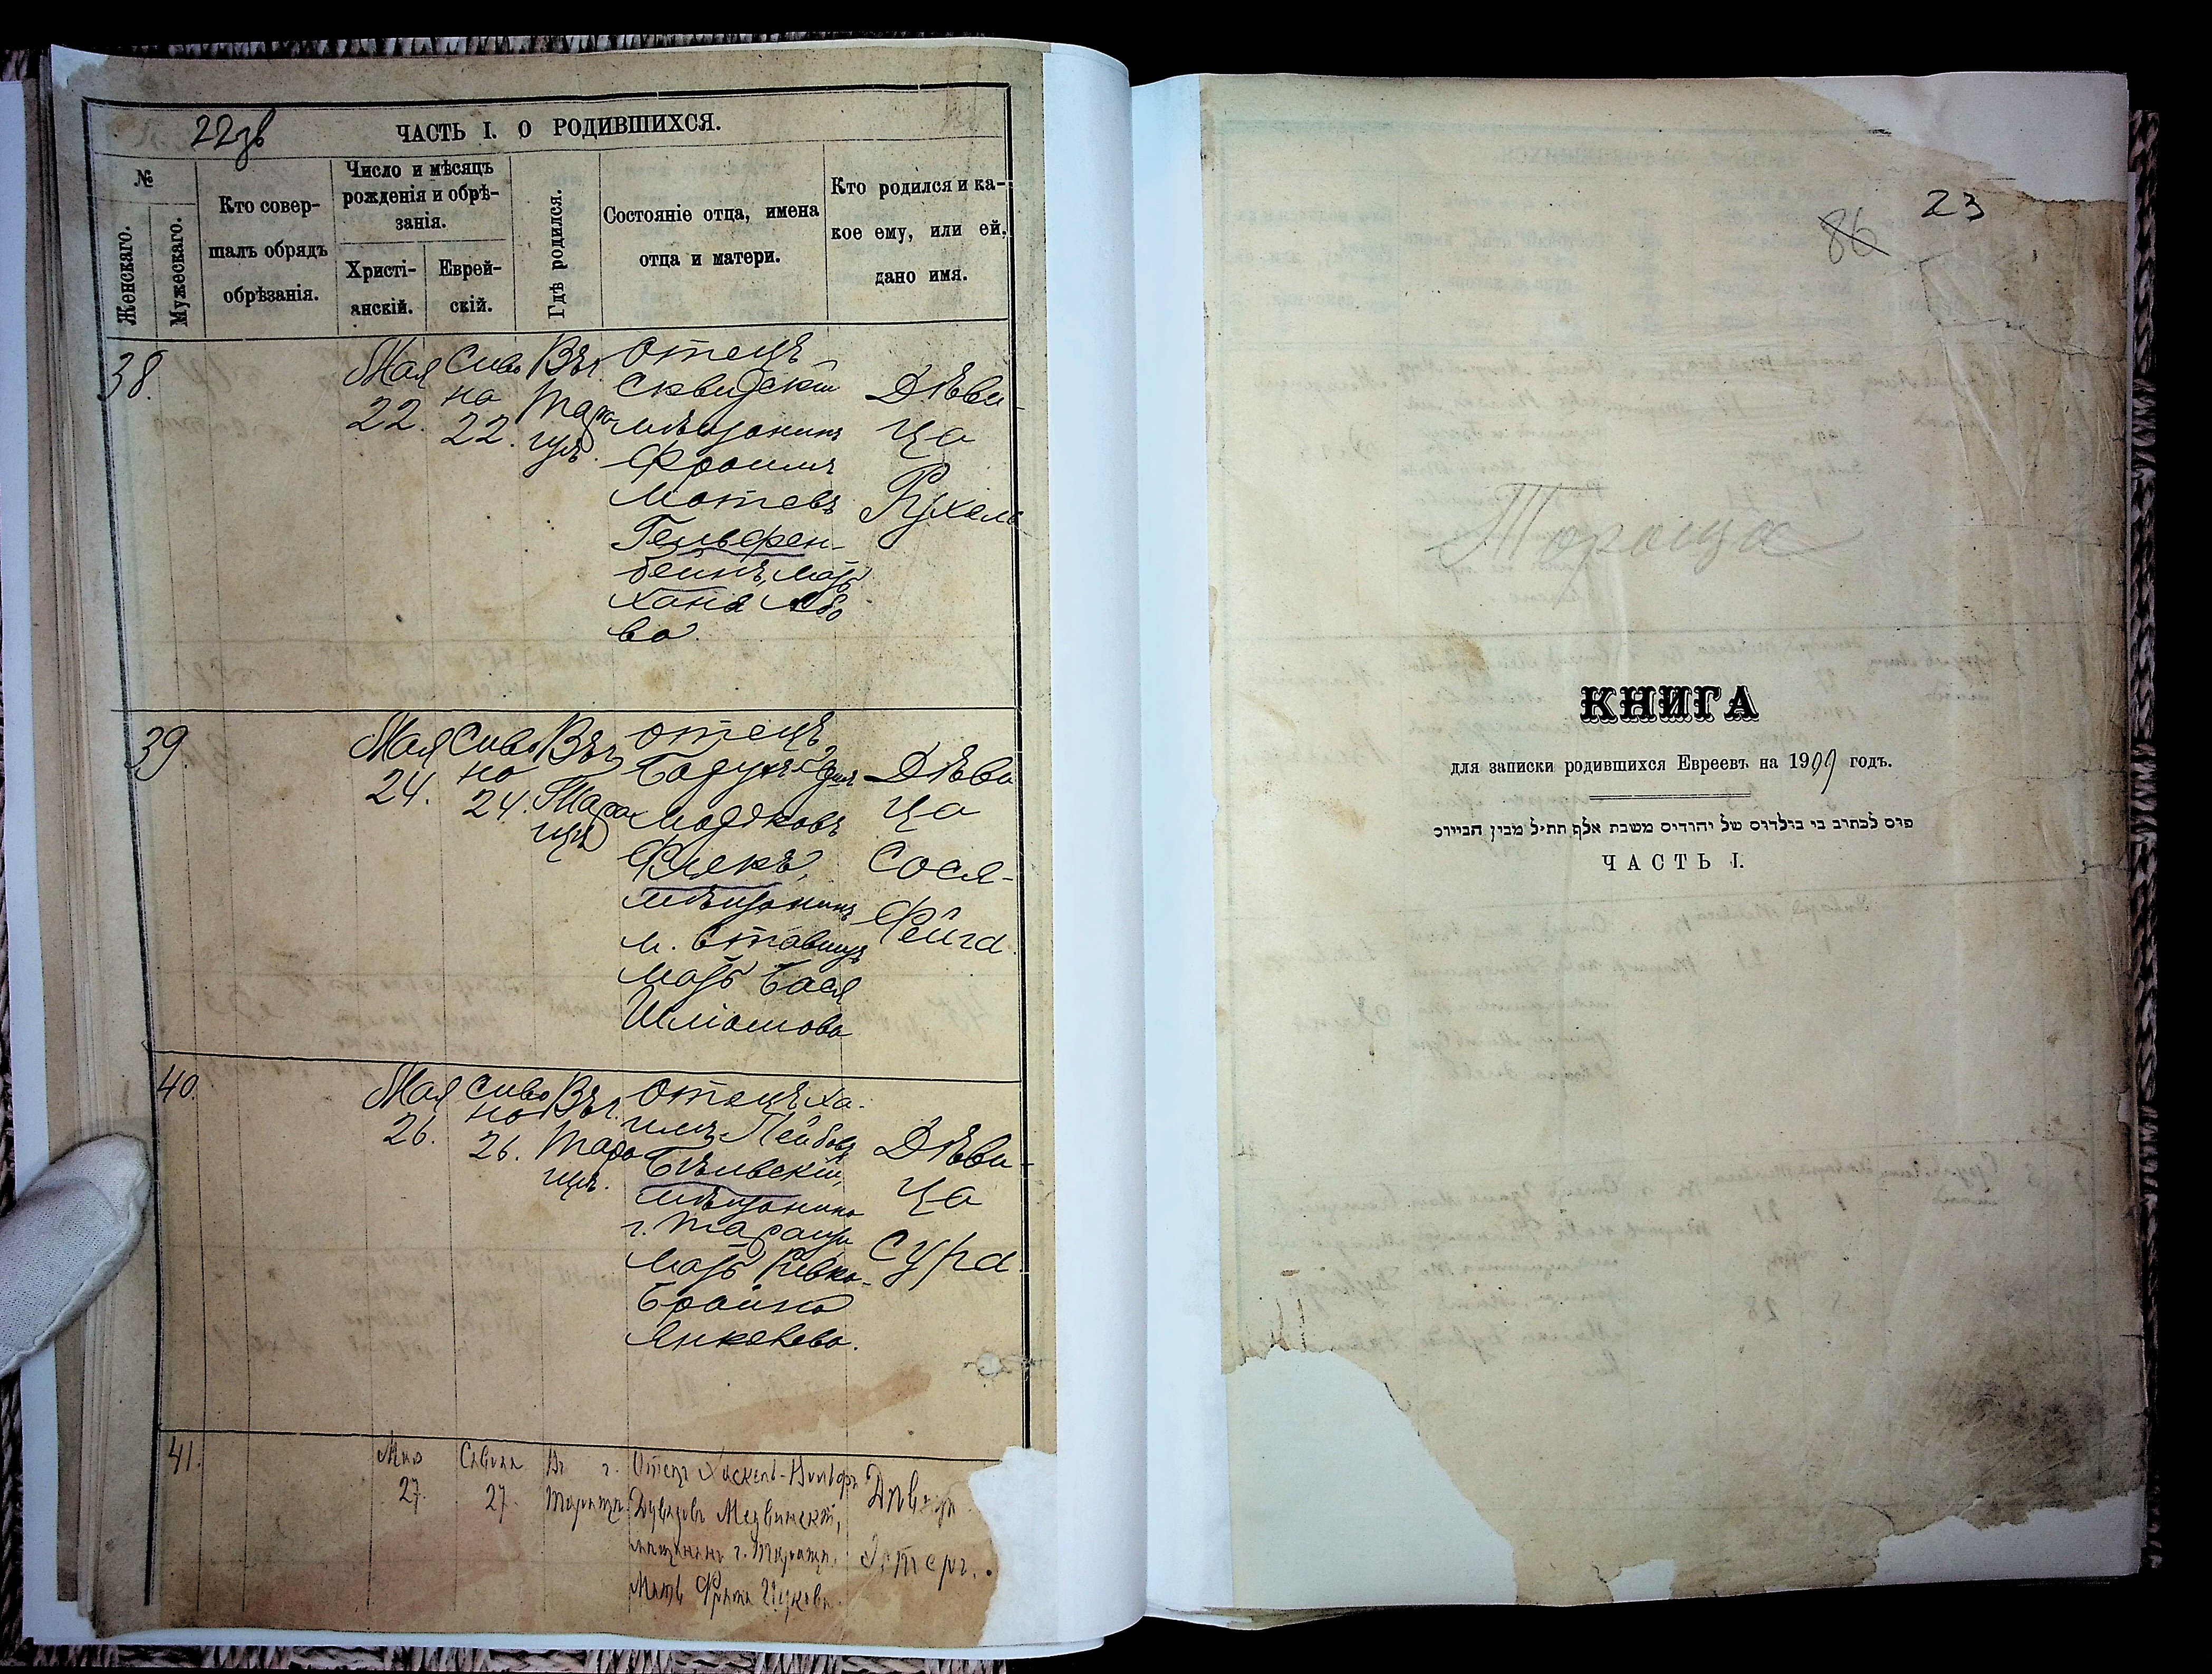 22 зв
ЧАСТЬ I. О РОДИВШИХСЯ.
№
Женскаго.
Мужескаго.
Кто совер-
шалъ обрядъ
обрѣзанія.
Число и мѣсяцъ
рожденія и обрѣ-
занія.
Христі-
анскій.
Еврей-
скій.
Гдѣ родился.
Состояніе отца, имена
отца и матери.
Кто родился и ка-
кое ему, или ей,
дано имя.
38.
Мая
22.
Сива
на
22.
Въ г.
Тара
щѣ.
Отецъ
Сквирскій
мѣщанинъ
Фроимъ
Мотевъ
Гельфен-
бейнъ, мать
Хана
ва.
Дѣви-
ца
Рухель
39.
Мая
24.
Сива
на
24.
Въ г.
Тара
щѣ
Отецъ
Мордковъ
Флекъ,
мѣщанинъ
м. Ставищъ
мать Бася
Шліомова
Дѣви
ца
Сося-
Фейга.
40.
Мая
26.
Сива
на
26.
Въ г.
Тара
щѣ.
Отецъ Ха-
имъ Лейбовъ
Бѣлівскій,
мѣщанинъ
г. Таращи
мать Ривка-
Брайна
Янкелева.
Дѣви-
ца
Сура.
41.
Мая
27.
Сивана
27.
Въ г.
Таращѣ.
Отецъ Хаскель-Вольфъ
Дувидовъ Медвинскій,
мѣщанинъ г. Таращи.
Мать Фрима
Дѣвица
86
23
Тараща
КНИГА
для записки родившихся Евреевъ на 1909 годъ.
ЧАСТЬ I.